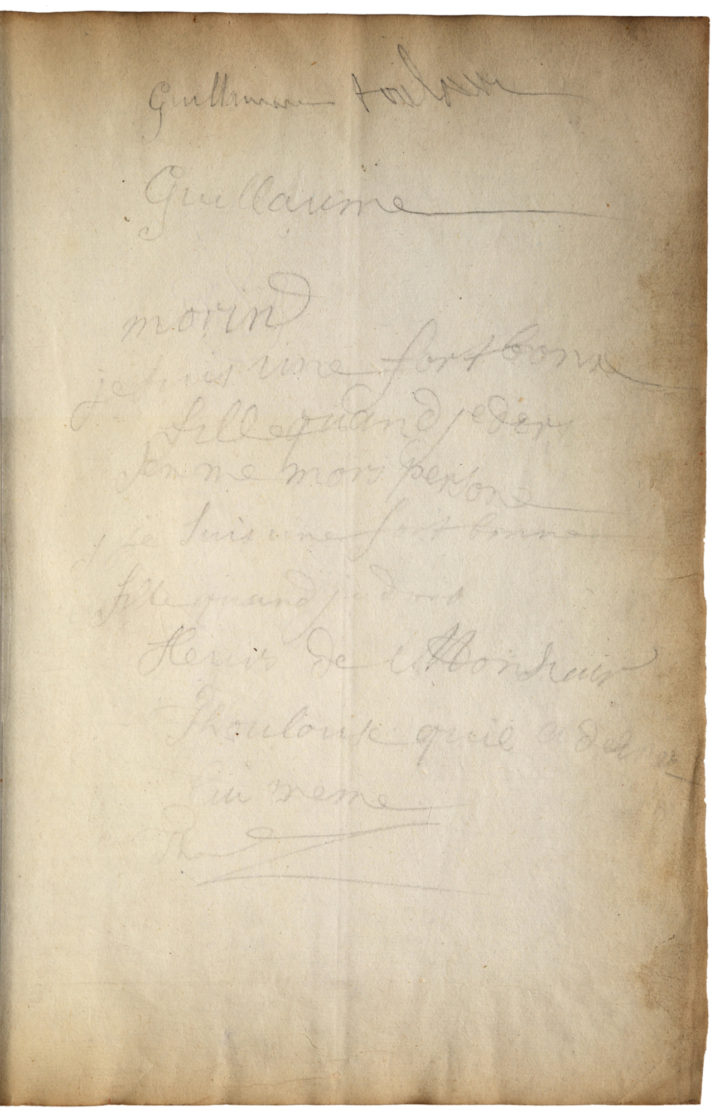 Guillaume
Guillaume
morin
je suis une fort bonne
fille quand je dors
je ne mors persone
je suis une fort bonne
fille quand je dors
de Monsieur
Thoulouse quil a
lui meme